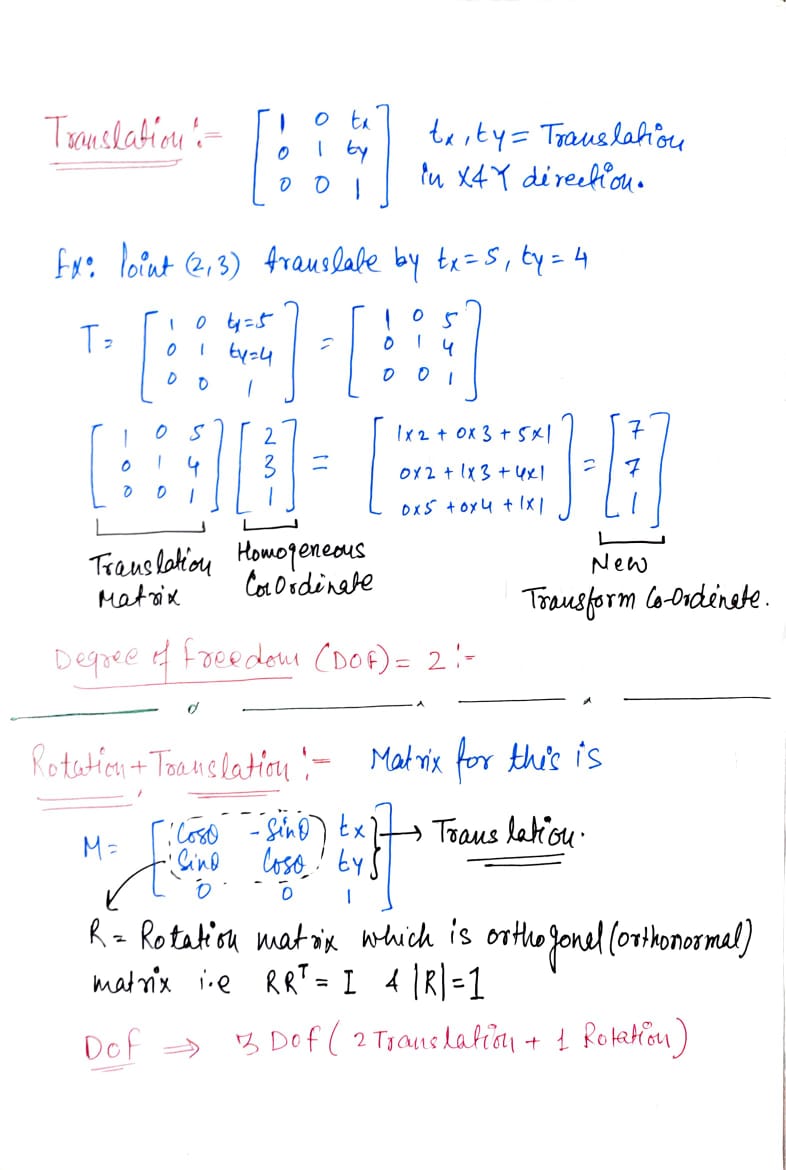 Translation :- [ 1 0 tx ] tx, ty = Translation
[ 0 1 ty ] in X & Y direction.
[ 0 0 1 ]
Ex: Point (2,3) translate by tx=5, ty=4
T = [ 1 0 tx=5 ] = [ 1 0 5 ]
[ 0 1 ty=4 ] [ 0 1 4 ]
[ 0 0 1 ] [ 0 0 1 ]
[ 1 0 5 ] [ 2 ] = [ 1x2 + 0x3 + 5x1 ] = [ 7 ]
[ 0 1 4 ] [ 3 ] [ 0x2 + 1x3 + 4x1 ] [ 7 ]
[ 0 0 1 ] [ 1 ] [ 0x5 + 0x4 + 1x1 ] [ 1 ]
Translation Matrix
Homogeneous CoOrdinate
New Transform Co-Ordinate.
Degree of freedom (DOF) = 2 :-
Rotation + Translation :- Matrix for this is
M = [ Cosθ -Sinθ tx ] → Translation.
[ Sinθ Cosθ ty ]
[ 0 0 1 ]
R = Rotation matrix which is orthogonel (orthonormal)
matrix i.e RRᵀ = I & |R|=1
Dof ⇒ 3 Dof ( 2 Translation + 1 Rotation)